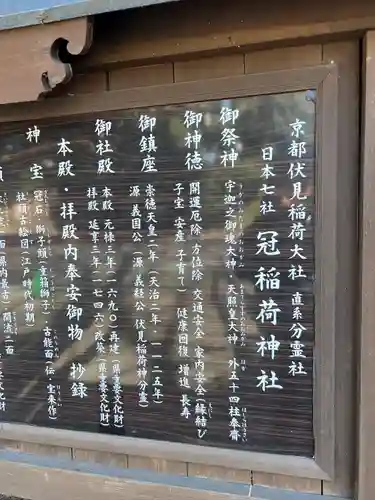 京都伏見稲荷大社 直系分霊社
日本七社 冠稲荷神社
御祭神 宇迦之御魂大神・天照皇大神 外五十四柱奉斎
御神徳 開運厄除 方位除 交通安全 家内安全(縁結び
子宝 安産 子育て)(健康回復 増進 長寿
御鎮座 崇徳天皇二年(天治二年・一一二五年)
源 義国公(源 義経公 伏見稲荷神分霊)
御社殿 本殿 元禄三年(一六九〇)再建(県重要文化財)
拝殿 延享三年(一七四六)改築(県重要文化財)
本殿・拝殿内奉安御物 抄録
神宝 冠石・獅子頭(重箱獅子)・古能面(伝 宝来作)
社頭古絵図(江戸時代初期)